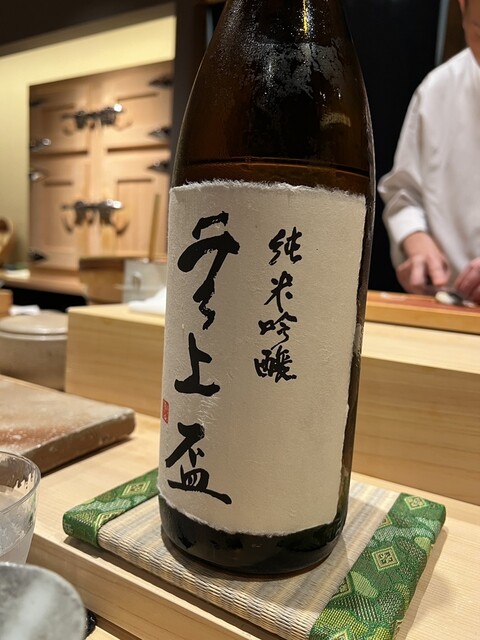 純米吟醸
无上盃